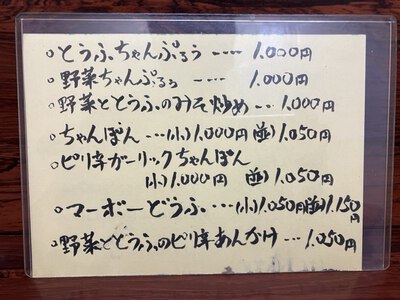 ○とうふちゃんぷるぅ ‥‥ 1.000円
○野菜ちゃんぷるぅ ‥‥ 1.000円
○野菜ととうふのみそ炒め‥1.000円
○ちゃんぽん‥‥(小)1.000円 (並)1.050円
○ピリ辛ガーリックちゃんぽん
(小)1.000円 (並)1.050円
○マーボーどうふ‥‥(小)1.050円(並)1.150円
○野菜ととうふのピリ辛あんかけ‥‥1.050円